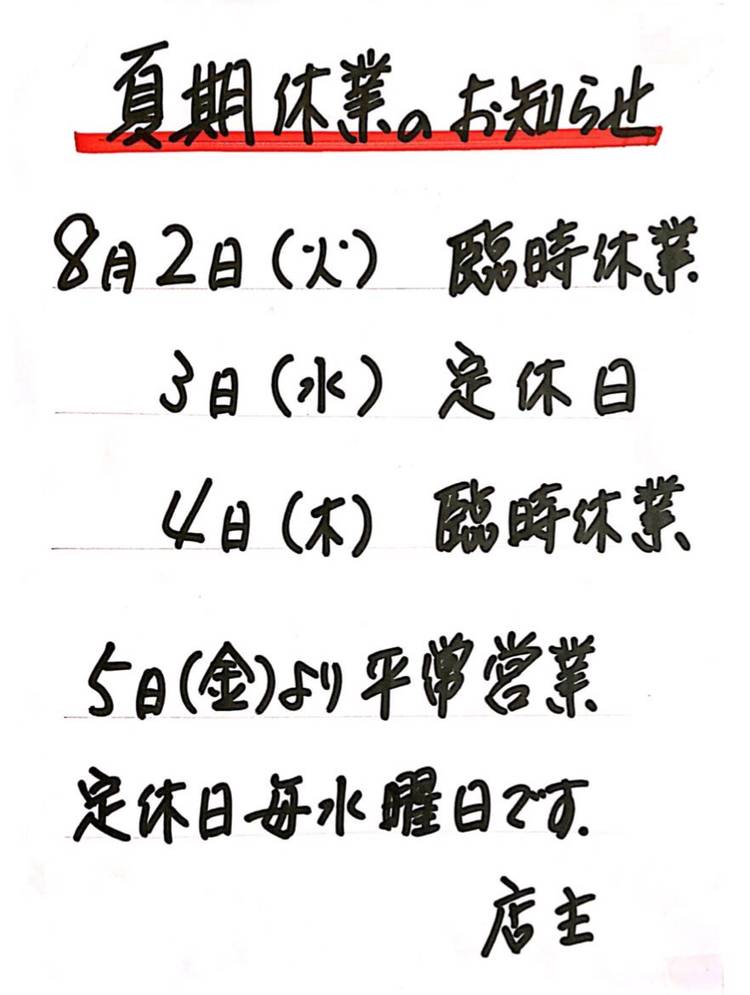 夏期休業のお知らせ
8月2日(火) 臨時休業
3日(水) 定休日
4日(木) 臨時休業
5日(金)より平常営業
定休日毎水曜日です.
店主